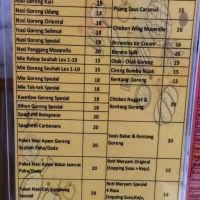 Nasi Goreng Kari 15
Nasi Goreng Udang 15
Nasi Goreng Oriental 15
Nasi Goreng Selimut 15
Nasi Goreng Spesial 15
Nasi Panggang Mozarella 20
Mie Rebus Seuhah Lev 1-10 15
Mie Goreng Seuhah Lev 1-10 15
Mie Goreng Spesial 15
Mie Tek-tek Spesial 15
Kwetiaw Goreng Spesial 15
Bihun Goreng Spesial 15
Spaghetti Bolognese 20
Spaghetti Carbonara 20
Paket Nasi Ayam Goreng 20
Seuhah Paha/Dada
Paket Nasi Ayam Bakar
Paha/Dada 20
Paket Nasi Cah Kangkung
Spesial
Pisang Saus Caramel
Chicken Wing Mozarella
Brownies Ice Cream
Banana Split
Otak - Otak Goreng
Cireng Bumbu Rujak 15
Kentang Goreng 15
Chicken Nugget &
Kentang Goreng 20
Sosis Bakar & Kentang
Goreng 20
Roti Maryam Original
(topping Susu + Keju) 15
Roti Maryam Spesial
(topping Susu, Keju,